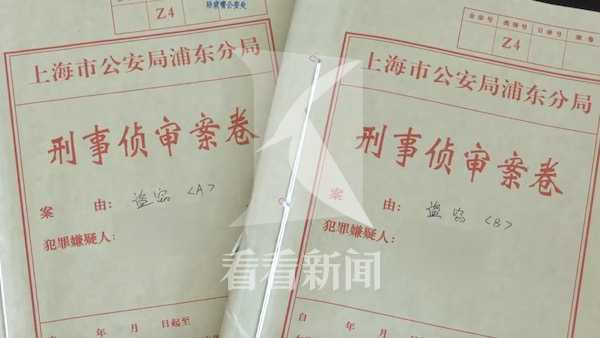 陆家嘴公安处
Z4
上海市公安局浦东分局
刑事侦审案卷
案 由：盗窃〈A〉
犯罪嫌疑人：
自 年 月 日起至
Z4
上海市公安局浦东分局
刑事侦审案卷
案 由：盗窃〈B〉
犯罪嫌疑人：
自 年 月 日起至
看看新闻